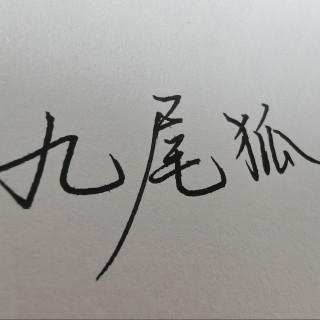 九尾狐